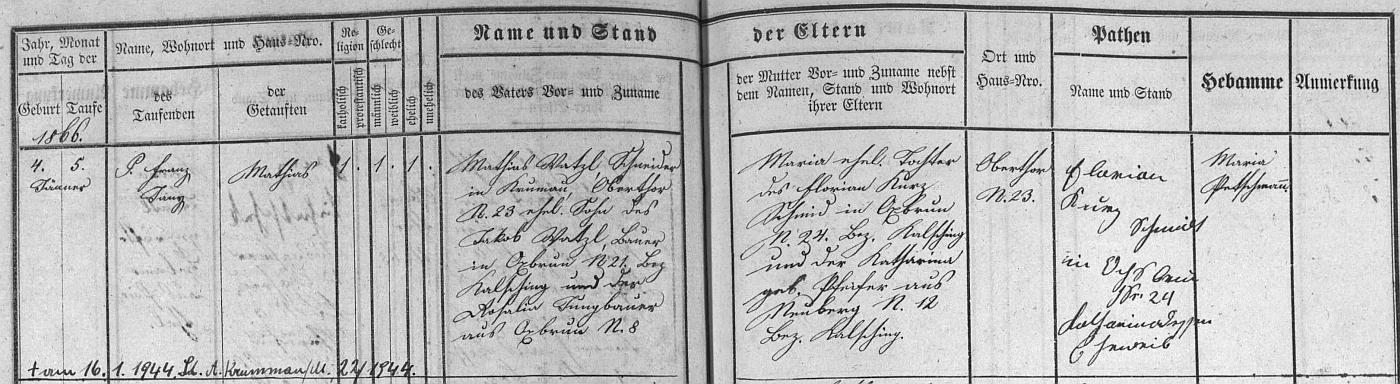 Jahr, Monat und Tag der
Geburt Taufe
Name, Wohnort und Haus-Nro.
des Taufenden
der Getauften
Religion
katholisch
protestantisch
Geschlecht
männlich
weiblich
ehelich
unehelich
Name und Stand der Eltern
des Vaters Vor- und Zuname
der Mutter Vor- und Zuname nebst
dem Namen, Stand und Wohnort
ihrer Eltern
Ort und
Haus-Nro.
Pathen
Name und Stand
Hebamme
Anmerkung
1866.
4. 5.
Jänner
P. Franz
Jany
Mathias
1. 1. 1.
Mathias Watzl, Schneider
in Krumau, Oberthor
N. 23 ehel. Sohn des
Jakob Watzl, Bauer
in Oxbrun N. 21. Bez.
Kalsching und der
Rosalia Jungbauer
aus Oxbrun N. 8
Maria ehel. Tochter
des Florian Kurz
Schmid in Oxbrun
N. 24. Bez. Kalsching
und der Katharina
geb. Pfeifer aus
Neuberg N. 12
Bez. Kalsching.
Oberthor
N. 23.
Florian
Kurz
Schmidt
in
Nr. 24
Katharina dessen
Eheweib
Maria
Petschmann
+ am 16. 1. 1944. St. A. Krummau/M. 22/1944.